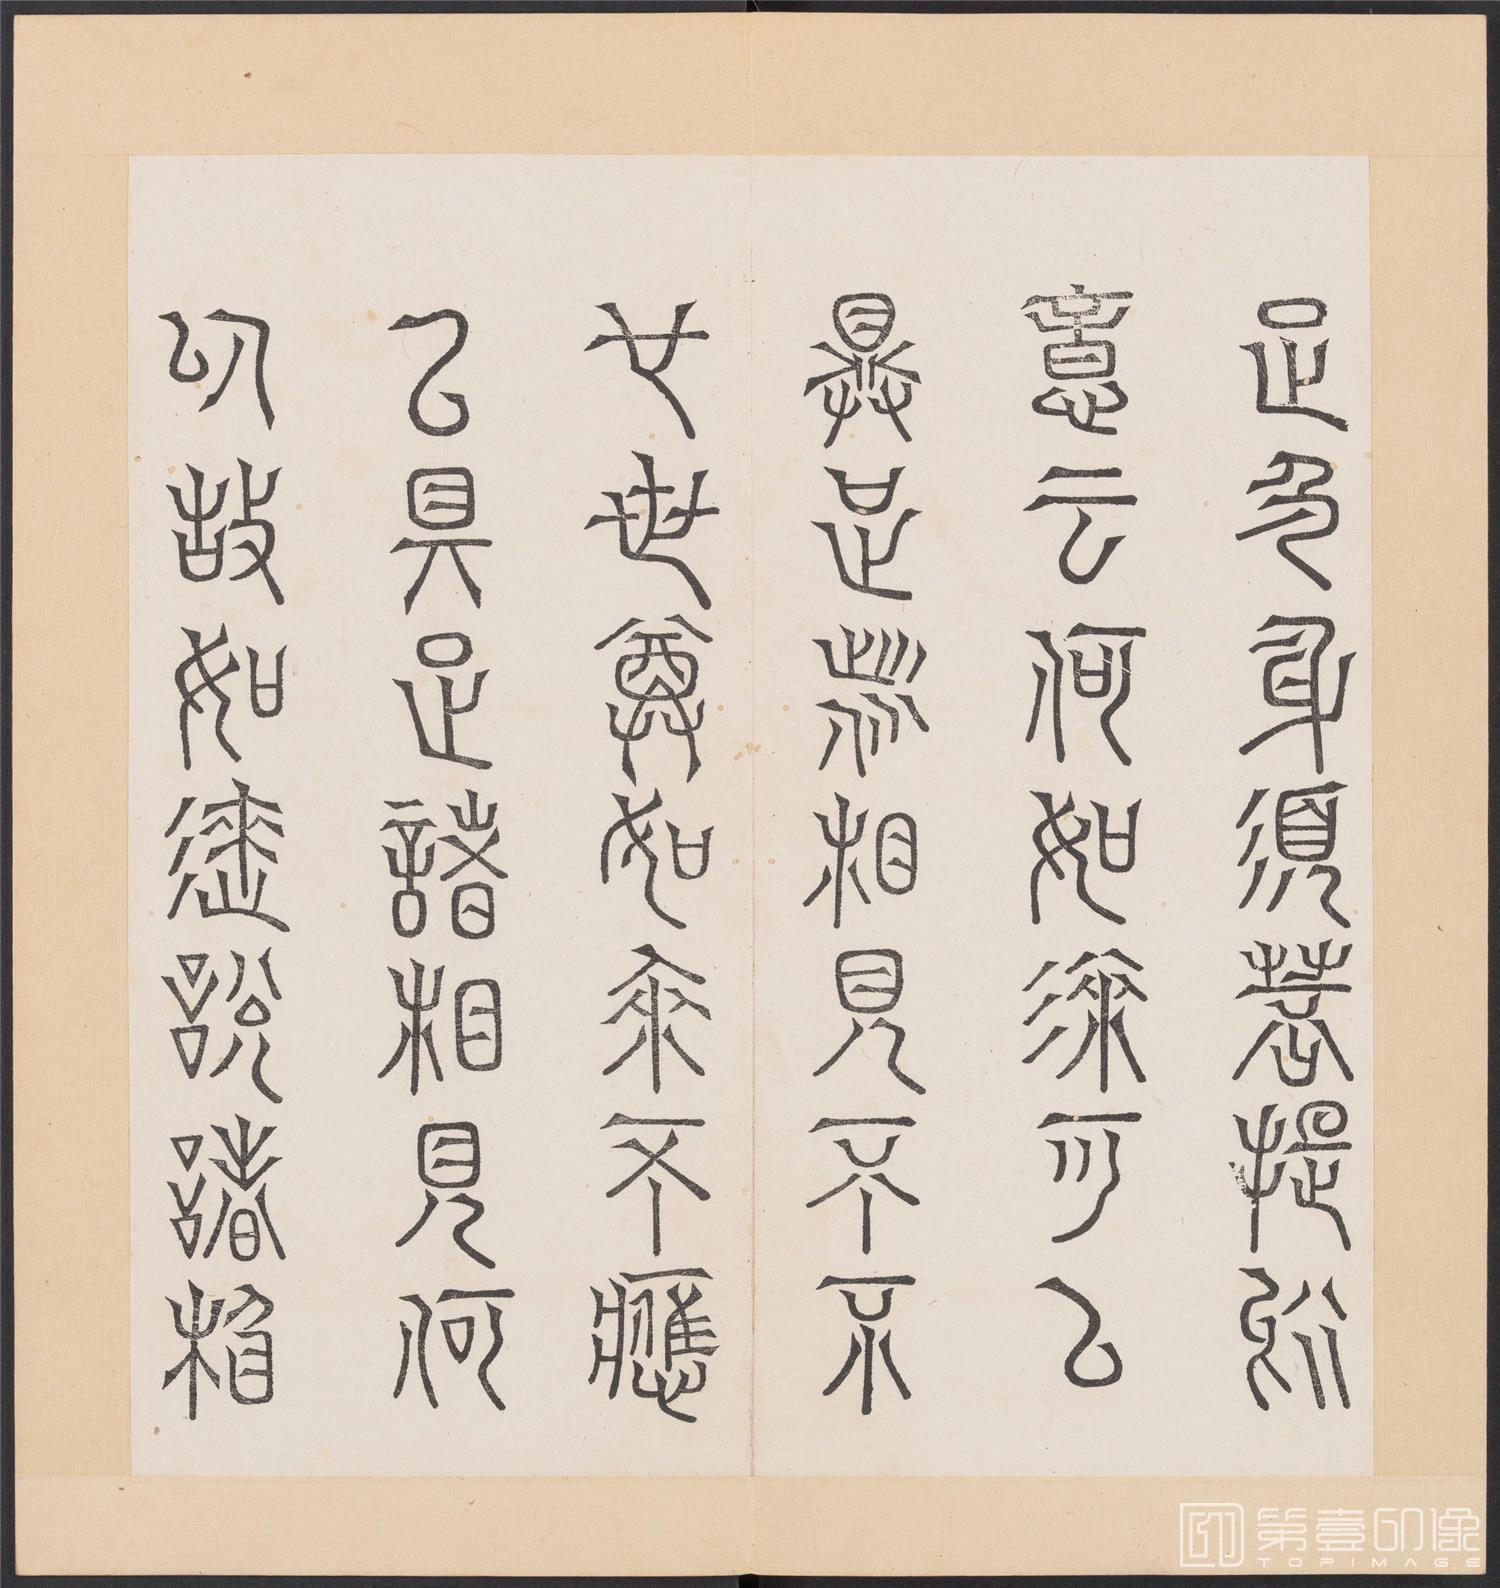 足色身須菩提於
意云何如來可以
具足諸相見不不
也世尊如來不應
以具足諸相見何
以故如來說諸相
第壹印像
TOPIMAGE